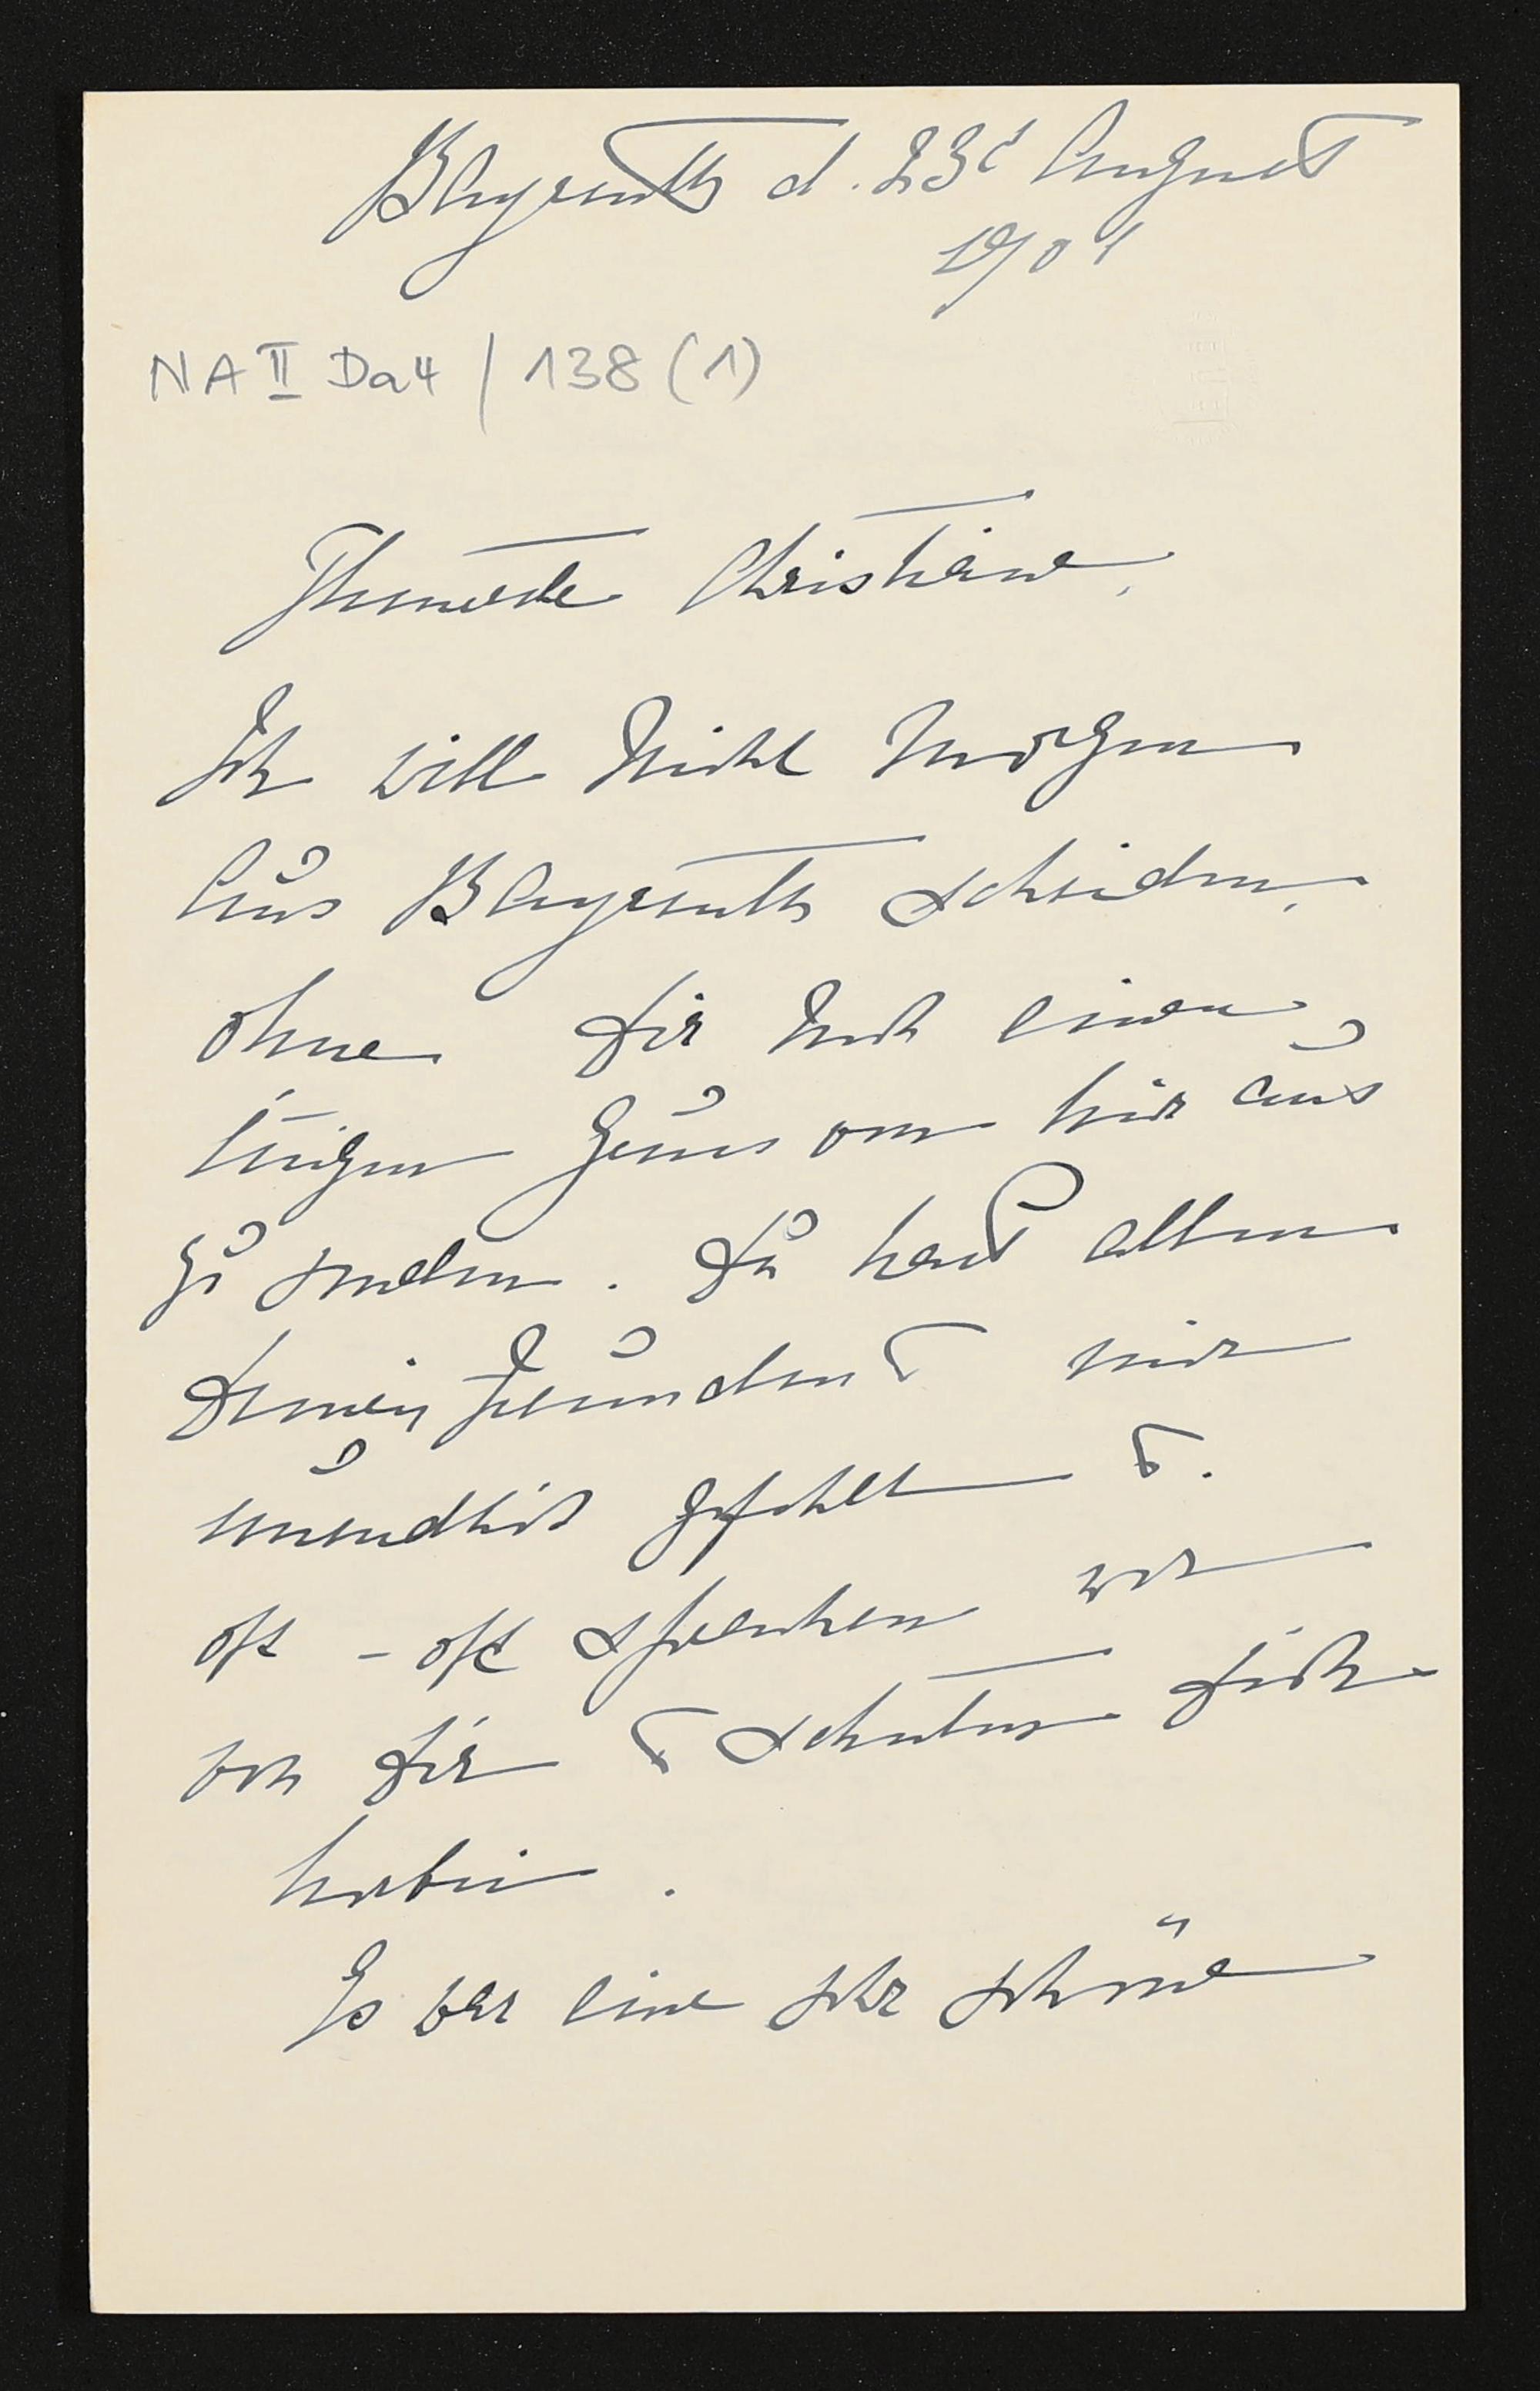 Bayreuth d. 23t August
1904
NA II Da4 / 138 (1)
Christiane,
Ich will nicht Morgen
Aus Bayreuth scheiden,
ohne Dir noch einen
innigen Gruss von hier aus
zu senden. Du hast allen
Deinen Freunden &
unendlich gefehlt &.
oft - oft sprechen wir
von Dir & Dich
herbei.
Es war eine sehr schöne